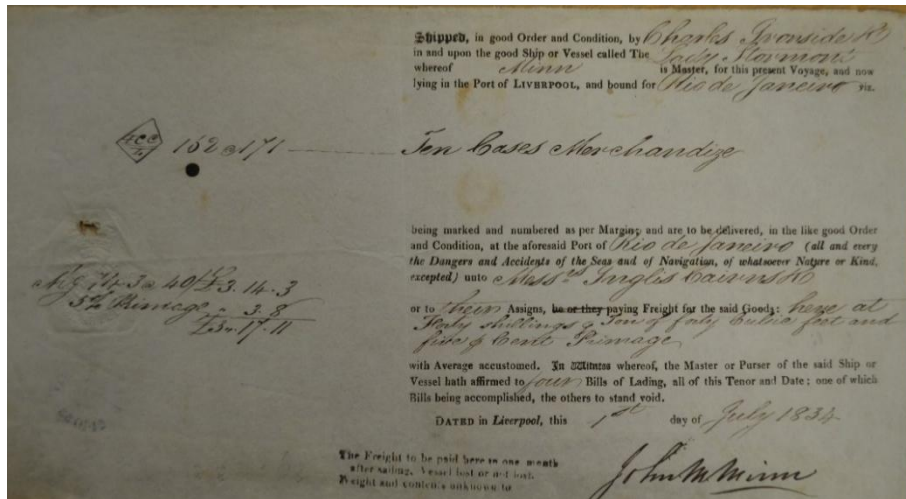 Shipped, in good Order and Condition, by Charles Ironside & Co
in and upon the good Ship or Vessel called The Lady Stormont
whereof Minn is Master, for this present Voyage, and now
lying in the Port of LIVERPOOL, and bound for Rio de Janeiro viz.
ICC
162 @ 171 Ten Cases Merchandize
being marked and numbered as per Margin; and are to be delivered, in the like good Order
and Condition, at the aforesaid Port of Rio de Janeiro (all and every
the Dangers and Accidents of the Seas and of Navigation, of whatsoever Nature or Kind,
excepted) unto Messrs Inglis Cairns & Co
40/ £3.14.3
5 Primage 3.8
£3.17.11
or to their Assigns, he or they paying Freight for the said Goods: here at
Forty shillings Ton of forty Cubic feet and
five Cent Primage
with Average accustomed. In Witness whereof, the Master or Purser of the said Ship or
Vessel hath affirmed to four Bills of Lading, all of this Tenor and Date; one of which
Bills being accomplished, the others to stand void.
DATED in Liverpool, this 1st day of July 1834
The Freight to be paid here in one month
after sailing, Vessel lost or not lost.
Weight and contents unknown to
John M Minn